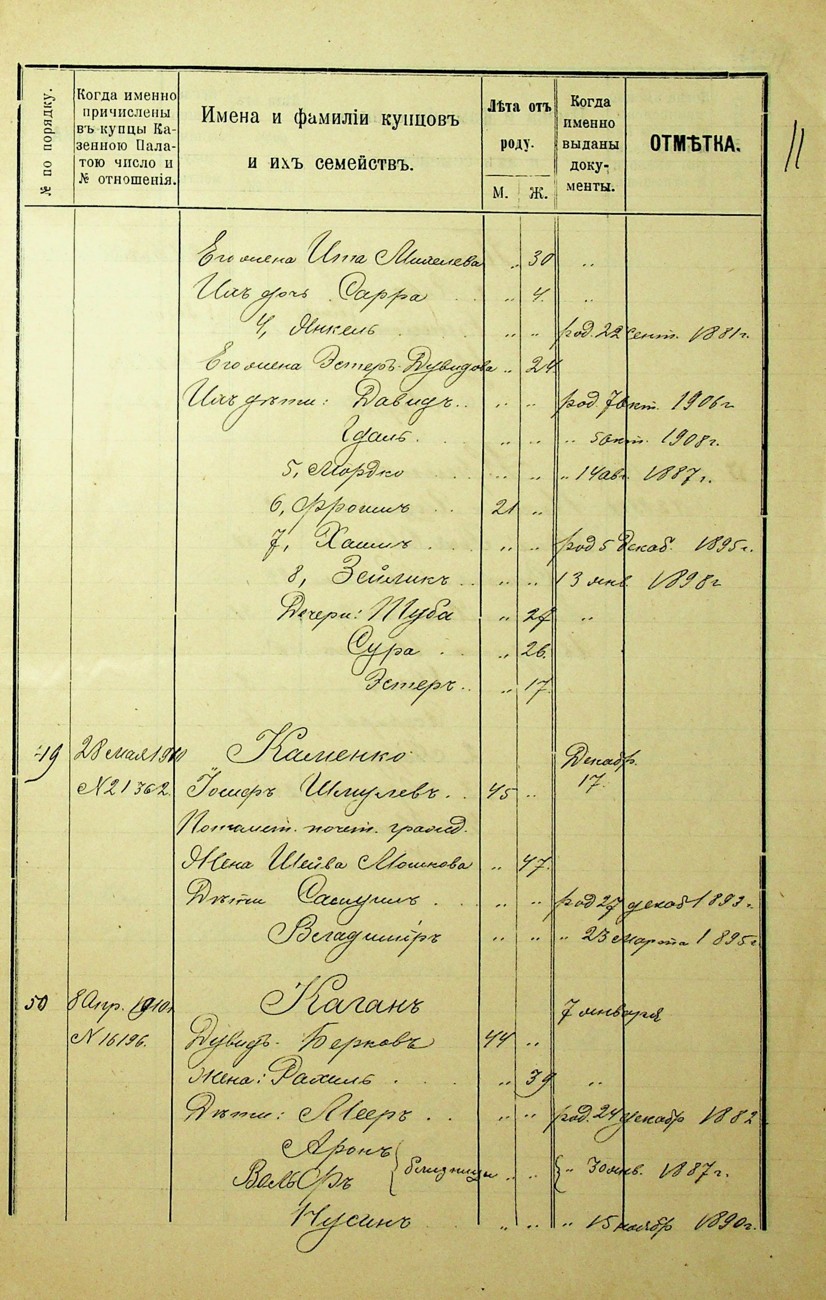 11
№ по порядку.
Когда именно
причислены
въ купцы Ка-
зенною Пала-
тою число и
№ отношенія.
Имена и фамиліи купцовъ
и ихъ семействъ.
Лѣта отъ
роду.
М. Ж.
Когда
именно
выданы
доку-
менты.
ОТМѢТКА.
Его жена Ита " 30 "
Ихъ дочь Сарра " 4 "
4, Янкель " " род. 22 сент. 1881 г.
Его жена Эстеръ Дувидова " 24
Ихъ дѣти: Давидъ " " род 7 окт. 1906 г
Гдаль " " " 5 окт. 1908 г.
5, Мордко " " " 14 авг. 1887 г.
6, Фроимъ 21 "
7, Хаимъ " " род 5 декаб. 1895 г.
8, Зейликъ " " 13 янв. 1898 г
Дочери: Туба " 27 "
Сура " 26
Эстеръ " 17
49 28 мая 1910 Каменко Декабр.
№ 21362. Іосифъ Шмулевъ 45 " 17
Потомст. почет. гражд.
Жена Шейва Мошкова " 47
Дѣти Самуилъ " " род 27 декаб 1893 г.
Владиміръ " " " 23 Марта 1895 г.
50 8 Апр. 1910 г. Каганъ 7 января
№ 16196. Дувидъ Берковъ 44 "
Жена: Рахиль " 39 "
Дѣти: Мееръ " " род. 24 декабр 1882
Аронъ
Вольфъ } близнецы " " { " 30 янв. 1887 г.
Нусинъ " " " 15 ноябр 1890 г.